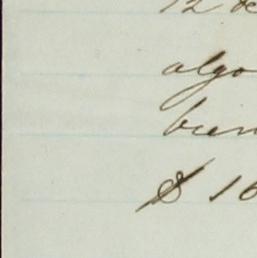 12 de
algo
bien
$ 16